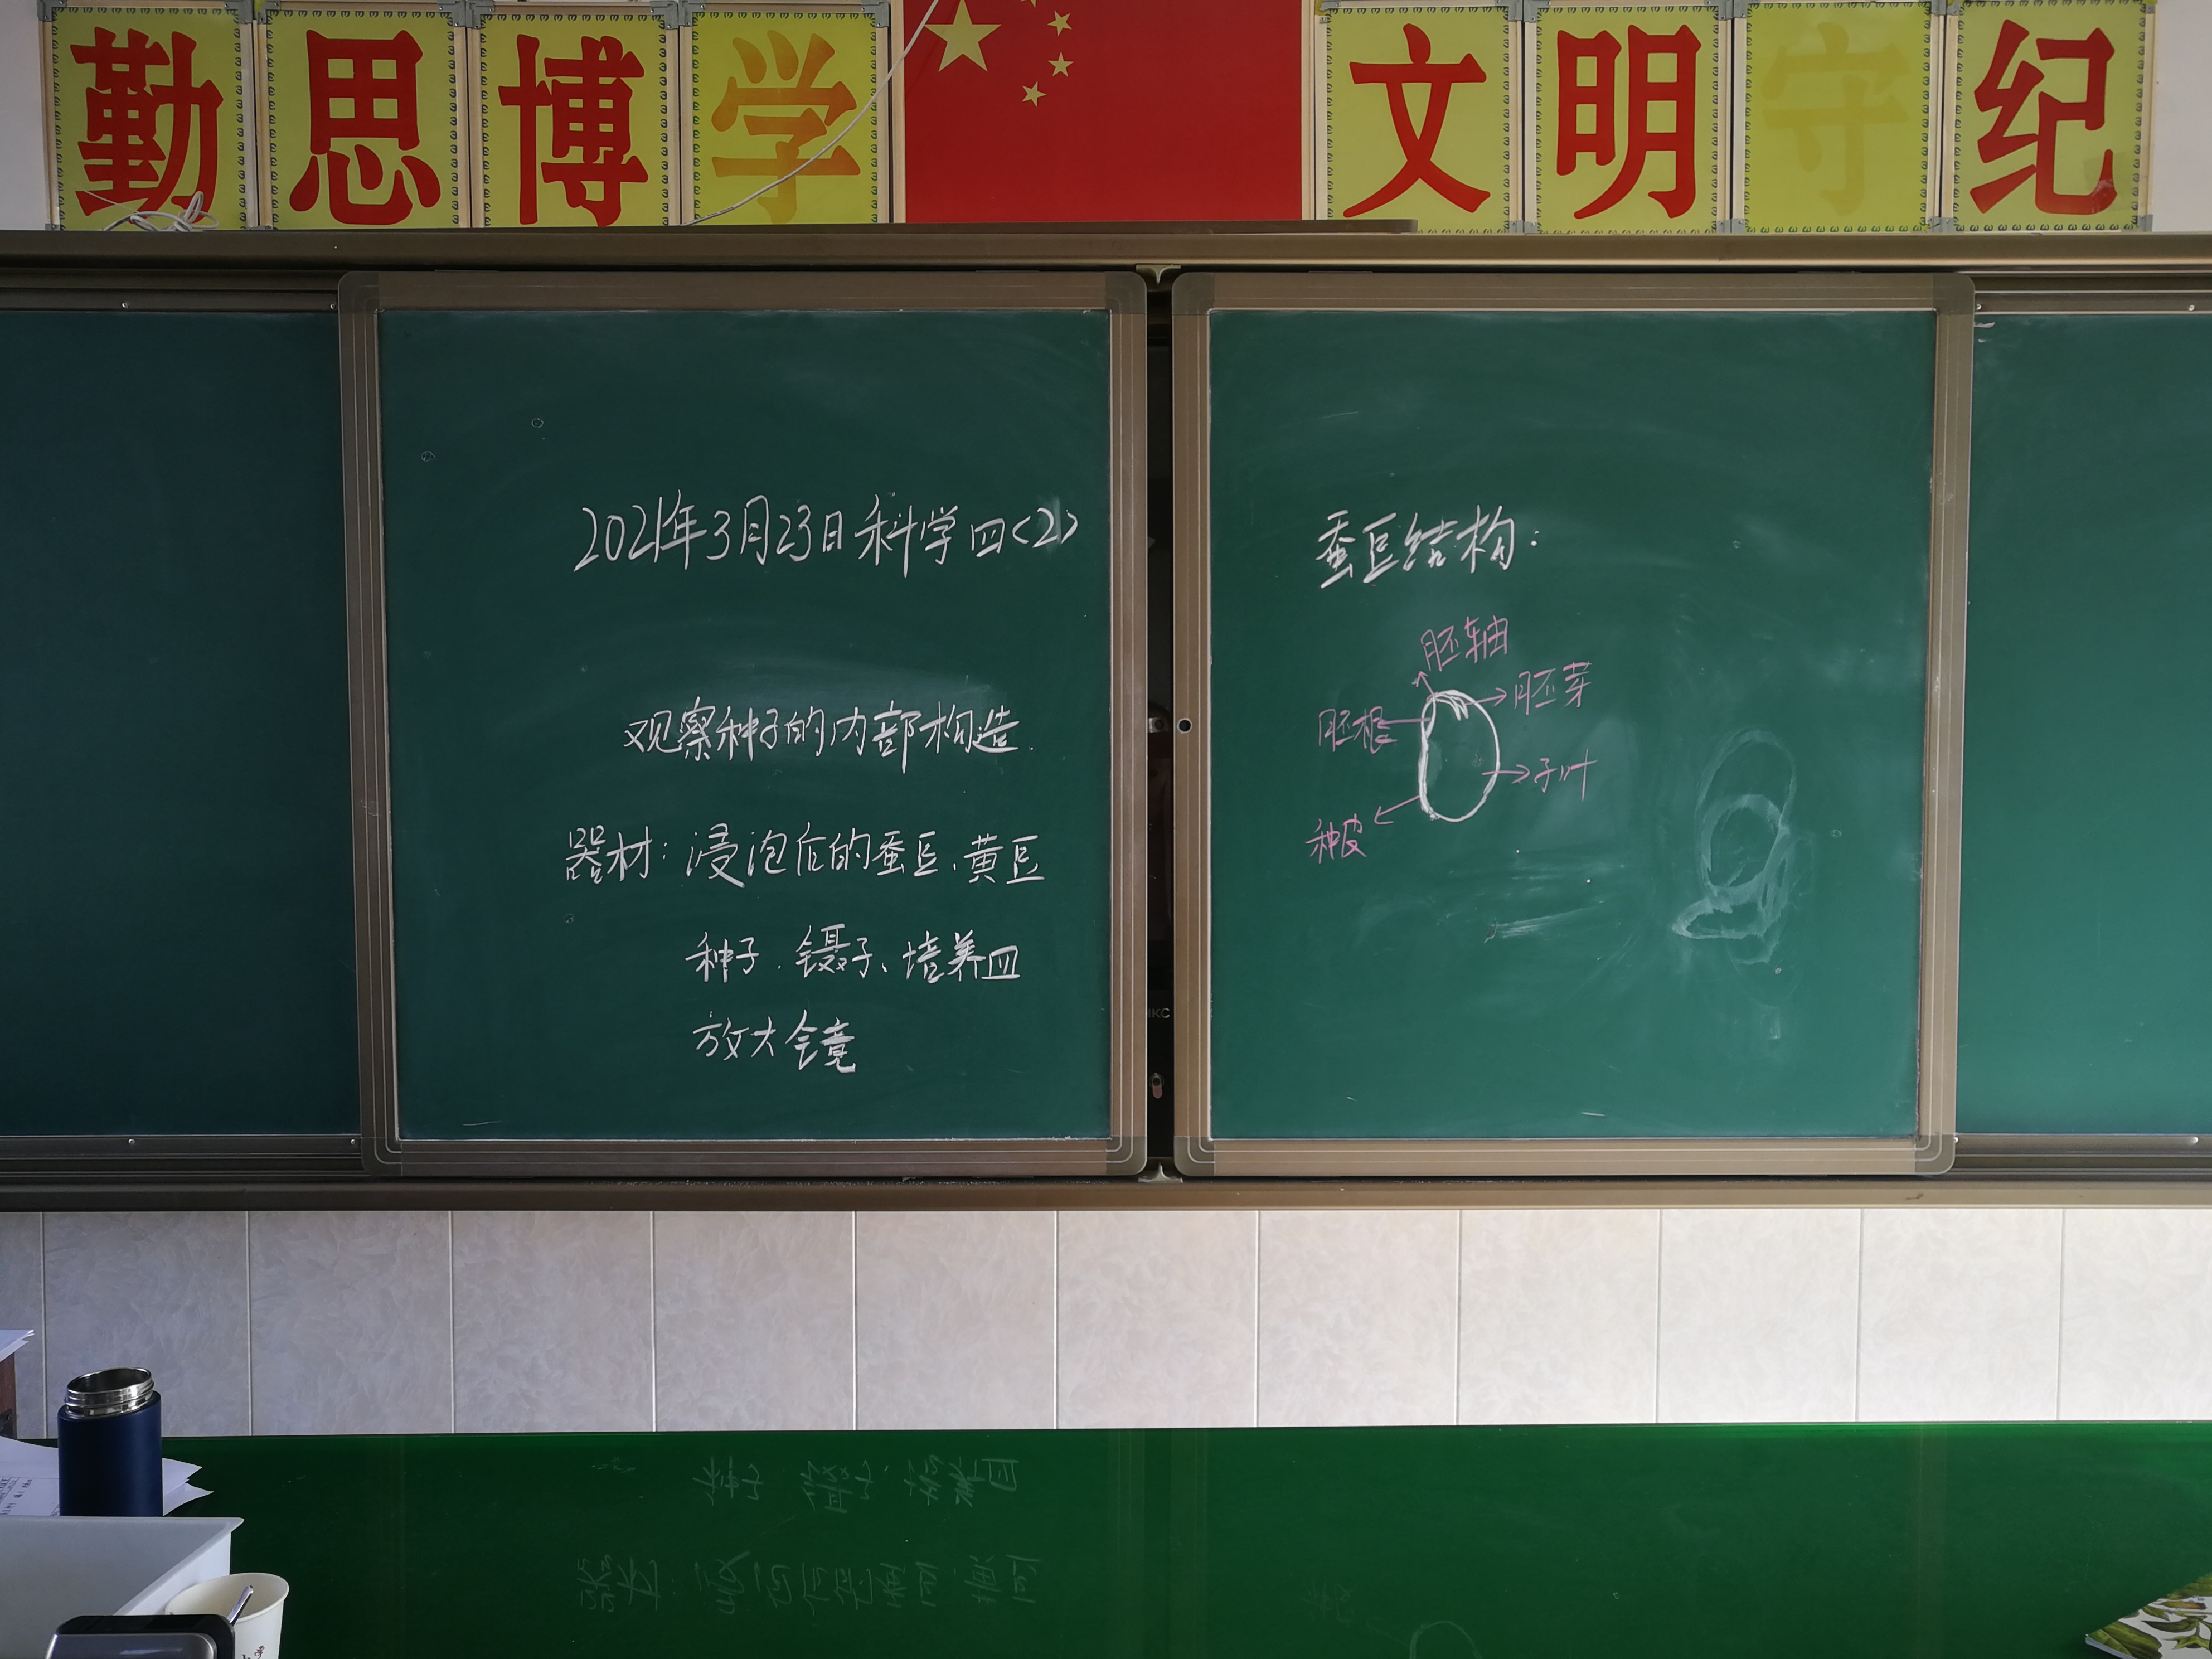 勤思博学
文明守纪
2021年3月23日科学四<2>
观察种子的内部构造.
器材：浸泡后的蚕豆、黄豆
种子、镊子、培养皿
放大镜
蚕豆结构：
胚轴
胚芽
胚根
子叶
种皮